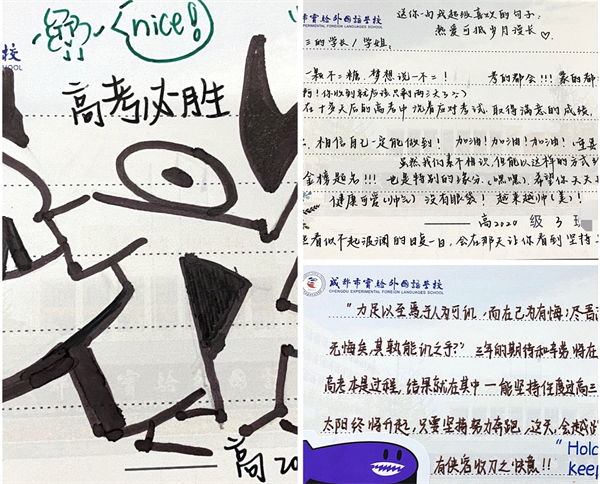 nice!
高考必胜
高20
校
SCHOOL
成都市实验外国语学校
送你一句我超级喜欢的句子:
EXPERIMENTAL FOREIGN LANGUAGES SCHOOL
热爱可抵岁月漫长♡
三的学长/学姐,
梦想说一不二!
考的都会!!!蒙的都
在十多天后的高考中沉着应对考试,取得满意的成绩,
相信自己一定能做到! 加油!加油!加油!
虽然我们素不相识,但能以这样的方式
金榜题名!!! 也是特别的缘分,(嘿嘿),希望你天天
健康可爱(帅气) 没有眼袋! 越来越帅(美)!
——高2020级3班
看似不起波澜的日复一日,会在那天让你看到坚持
成都市实验外国语学校
CHENGDU EXPERIMENTAL FOREIGN LANGUAGES SCHOOL
"力足以至焉于人为可讥,而在己为有悔;尽吾
无悔矣,其孰能讥之乎?"三年的期待和辛劳将在
高考本是过程,结果就在其中一能坚持住度过高三
太阳终将升起,只要坚持努力奔跑,这天,会越
有侠客收刀之快意!!
"Hold
keep